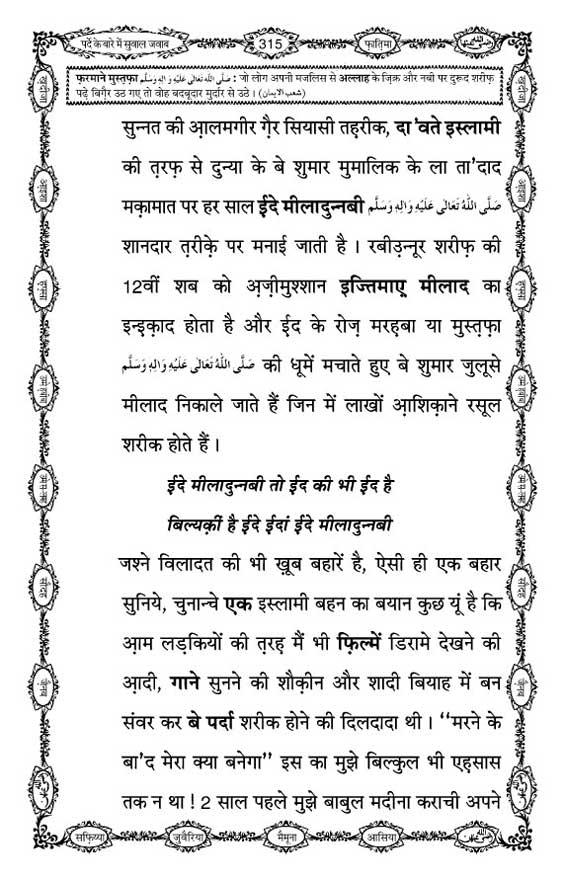 पर्दे के बारे में सुवाल जवाब
315
फ़ातिमा
फ़रमाने मुस्त़फ़ा صَلَّى اللهُ تَعَالٰى عَلَيْهِ وَاٰلِهٖ وَسَلَّم : जो लोग अपनी मजलिस से अल्लाह के ज़िक्र और नबी पर दुरूद शरीफ़
पढ़े बिग़ैर उठ गए तो वोह बदबूदार मुर्दार से उठे । (شعب الایمان)
सुन्नत की आ़लमगीर ग़ैर सियासी तह़रीक, दा'वते इस्लामी
की त़रफ़ से दुन्या के बे शुमार मुमालिक के ला ता'दाद
मक़ामात पर हर साल ईदे मीलादुन्नबी صَلَّى اللهُ تَعَالٰى عَلَيْهِ وَاٰلِهٖ وَسَلَّم
शानदार त़रीक़े पर मनाई जाती है । रबीउ़न्नूर शरीफ़ की
12वीं शब को अ़ज़ीमुश्शान इज्तिमाए़ मीलाद का
इन्इ़क़ाद होता है और ईद के रोज़ मरह़बा या मुस्त़फ़ा
صَلَّى اللهُ تَعَالٰى عَلَيْهِ وَاٰلِهٖ وَسَلَّم की धूमें मचाते हुए बे शुमार जुलूसे
मीलाद निकाले जाते हैं जिन में लाखों आ़शिक़ाने रसूल
शरीक होते हैं ।
ईदे मीलादुन्नबी तो ईद की भी ईद है
बिल्यक़ीं है ईदे ईदां ईदे मीलादुन्नबी
जश्ने विलादत की भी ख़ूब बहारें है, ऐसी ही एक बहार
सुनिये, चुनान्चे एक इस्लामी बहन का बयान कुछ यूं है कि
आ़म लड़कियों की त़रह़ मैं भी फ़िल्में डिरामे देखने की
आ़दी, गाने सुनने की शौक़ीन और शादी बियाह में बन
संवर कर बे पर्दा शरीक होने की दिलदादा थी । ‘‘मरने के
बा'द मेरा क्या बनेगा’’ इस का मुझे बिल्कुल भी एह़सास
तक न था ! 2 साल पहले मुझे बाबुल मदीना कराची अपने
सफ़िय्या
जुवैरिया
मैमूना
आसिया